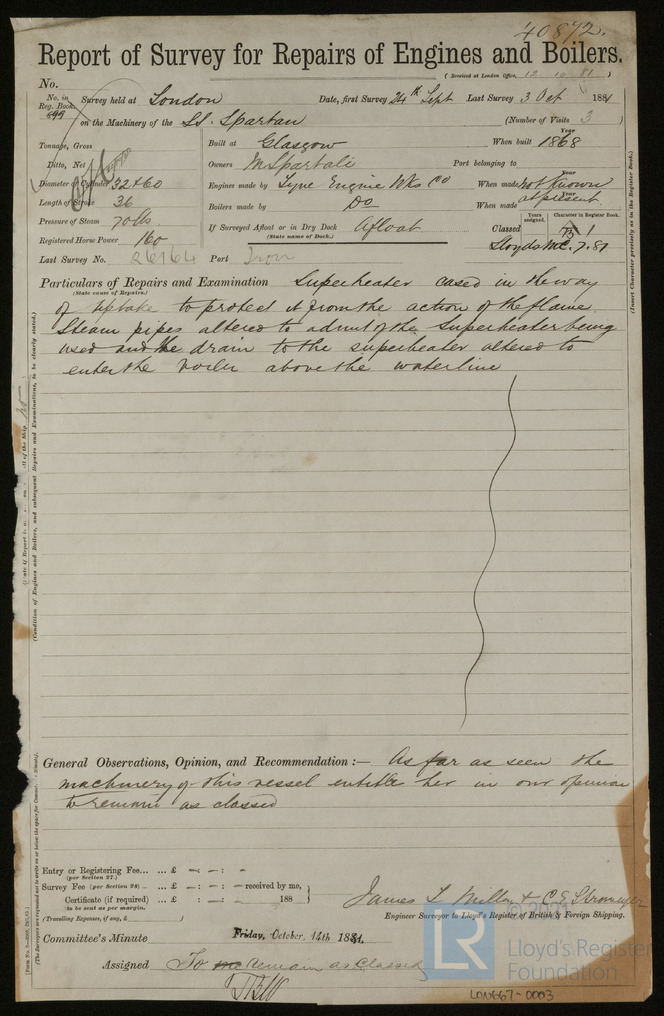 40872.
Report of Survey for Repairs of Engines and Boilers.
(Received at London Office, 12 10 81)
No.
No. in Reg. Book. 699 Survey held at London Date, first Survey 24th Sept Last Survey 3 Oct 1881
on the Machinery of the S.S. Spartan (Number of Visits 3)
Tonnage, Gross
Ditto, Net
Diameter of Cylinder 32 & 60
Length of Stroke 36
Pressure of Steam 70 lbs
Registered Horse Power 160
Built at Glasgow When built 1868
Owners M Spartali Port belonging to
Engines made by Tyne Engine Wks Co When made not known
Boilers made by Do When made at present
If Surveyed Afloat or in Dry Dock Afloat
(State name of Dock.)
Years assigned. Character in Register Book.
Classed
Lloyds M.C. 7.81
Last Survey No. 26164 Port Iron
Particulars of Repairs and Examination Superheater cased in the way
(State cause of Repairs.)
of uptake to protect it from the action of the flame.
Steam pipes altered to admit of the superheater being
used and the drain to the superheater altered to
enter the boiler above the waterline
(Insert Character precisely as in the Register Book.)
(Condition of Engines and Boilers, and subsequent Repairs and Examinations, to be clearly stated.)
General Observations, Opinion, and Recommendation:— As far as seen the
machinery of this vessel entitle her in our opinion
to remain as classed
Entry or Registering Fee... ... £ – : – : –
(per Section 27.)
Survey Fee (per Section 28) ... ... £ – : – : – received by me,
Certificate (if required) ... £ – : – : 188
to be sent as per margin.
(Travelling Expenses, if any, £ )
James T Milton & C E Stromeyer
Engineer Surveyor to Lloyd's Register of British & Foreign Shipping.
Committee's Minute Friday, October, 14th 1881.
Assigned To remain as Classed
© 2021
LR
Lloyd's Register
Foundation
LON667-0003